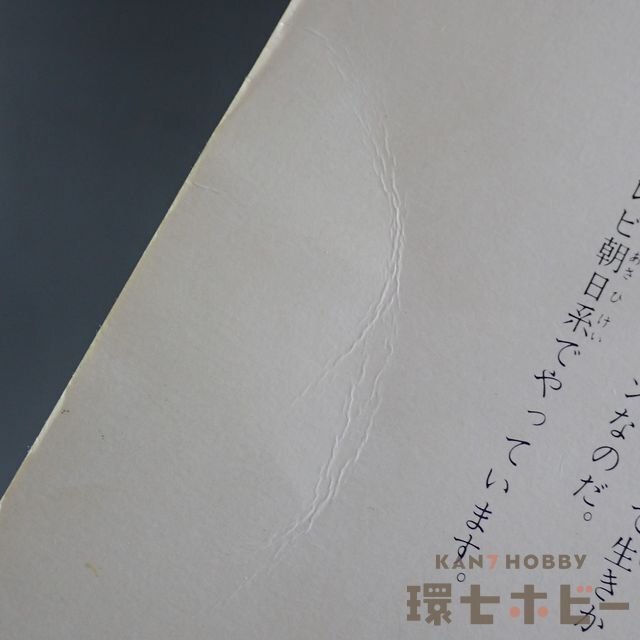 レビ朝日系でやっています。
なのだ。
で生きか
KAN7 HOBBY
環七ホビー